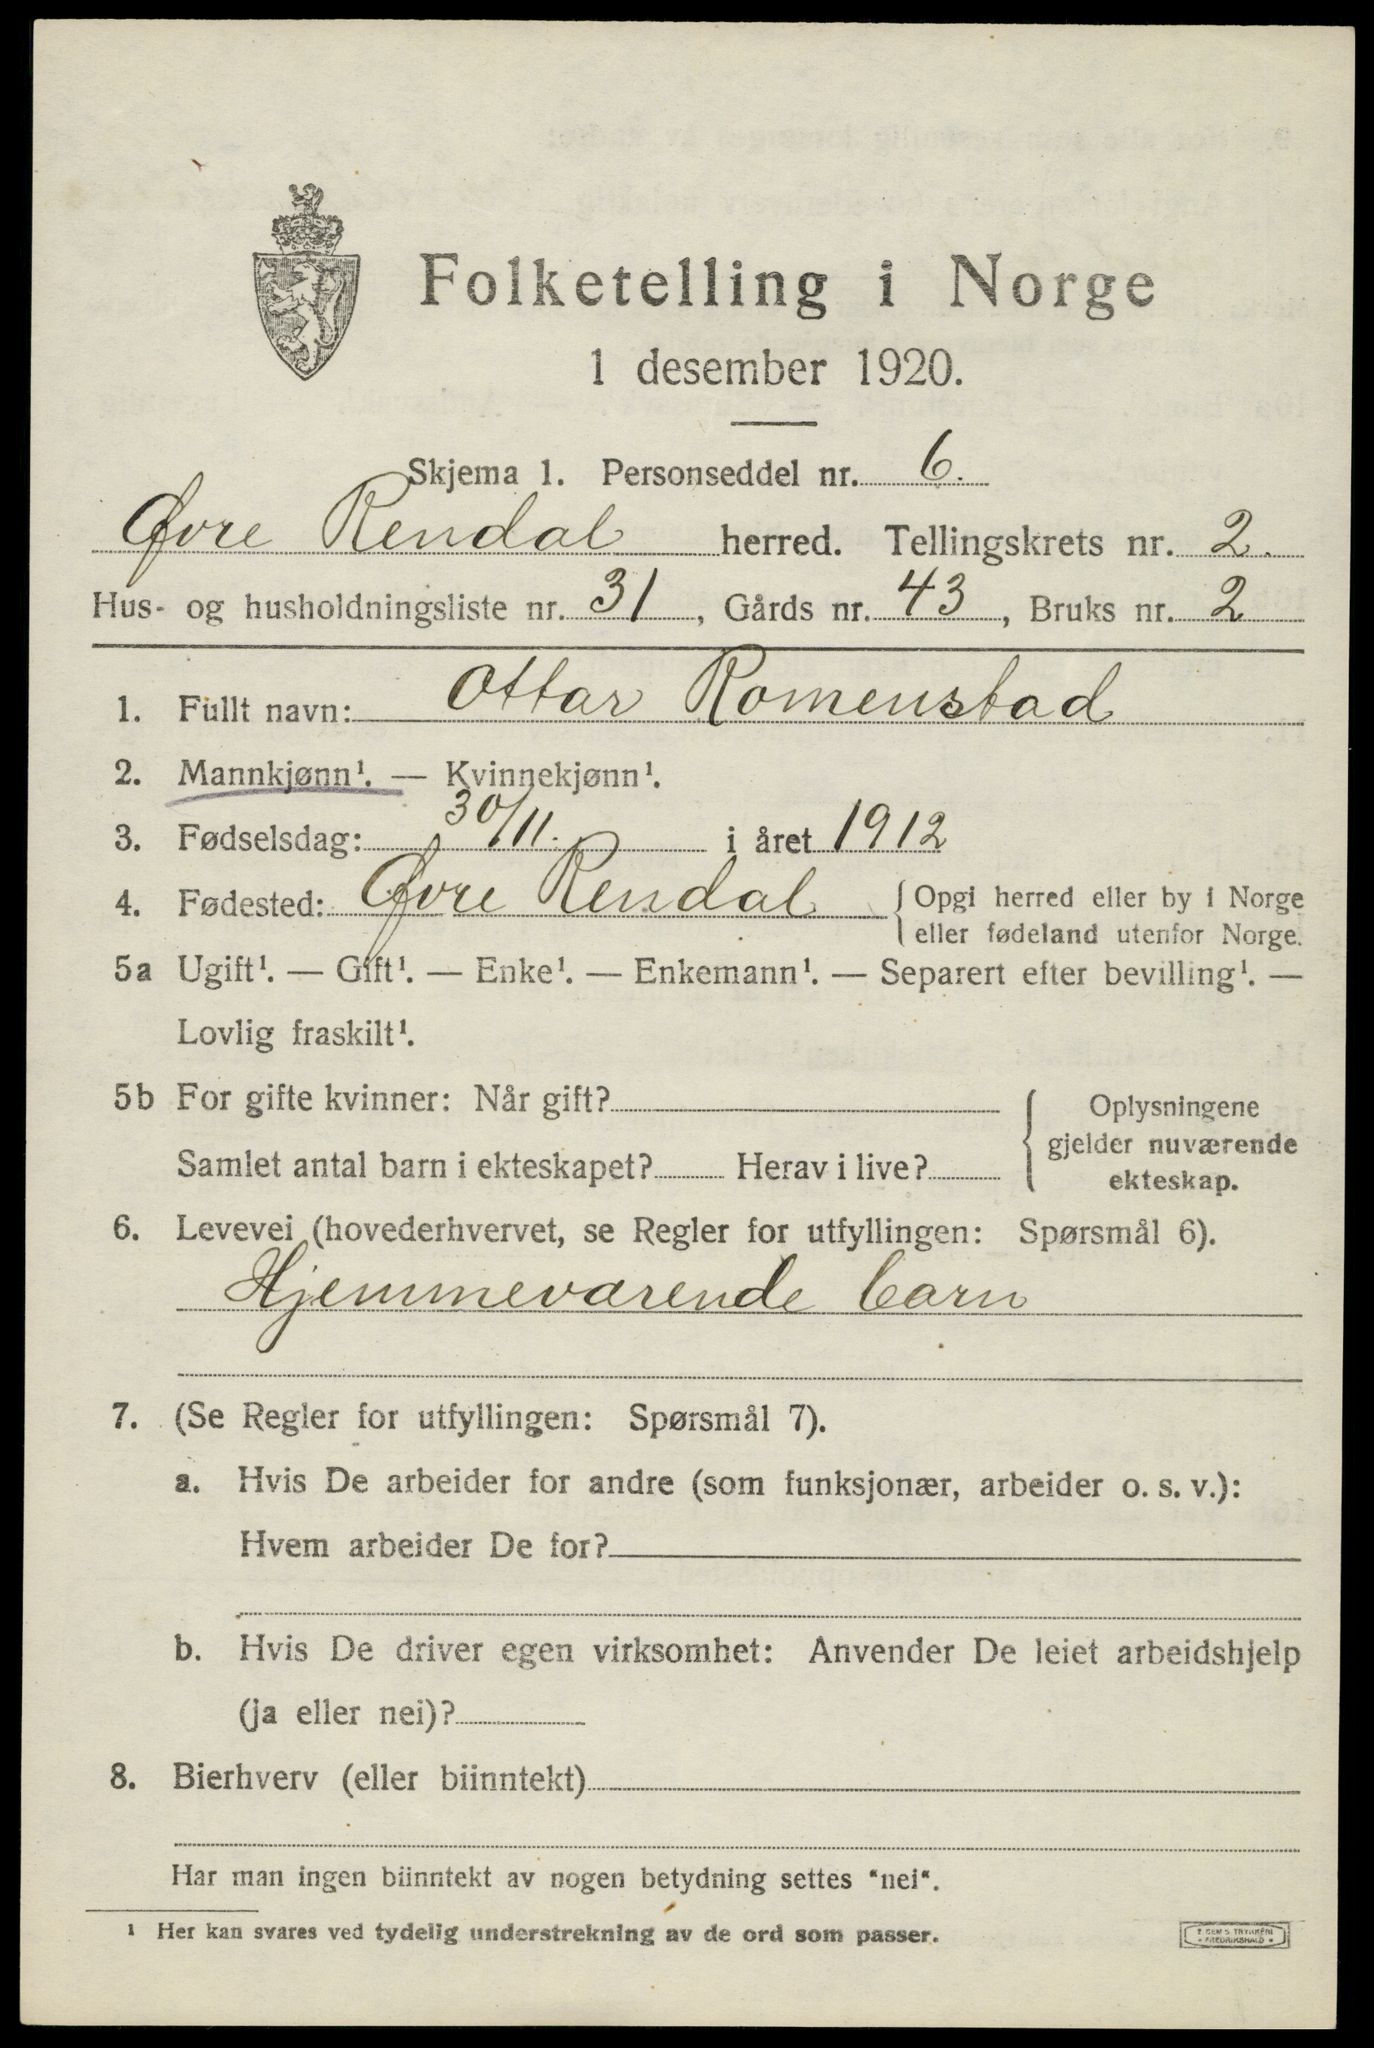 Folketelling i Norge
1 desember 1920.
Skjema 1. Personseddel nr. 6.
Øvre Rendal herred. Tellingskrets nr. 2.
Hus- og husholdningsliste nr. 31, Gårds nr. 43, Bruks nr. 2
1. Fullt navn: Ottar Romenstad
2. Mannkjønn¹. — Kvinnekjønn¹.
3. Fødselsdag: 30/11. i året 1912
4. Fødested: Øvre Rendal { Opgi herred eller by i Norge
eller fødeland utenfor Norge.
5a Ugift¹. — Gift¹. — Enke¹. — Enkemann¹. — Separert efter bevilling¹. —
Lovlig fraskilt¹.
5b For gifte kvinner: Når gift? { Oplysningene
gjelder nuværende
Samlet antal barn i ekteskapet? Herav i live? ekteskap.
6. Levevei (hovederhvervet, se Regler for utfyllingen: Spørsmål 6).
Hjemmeværende barn
7. (Se Regler for utfyllingen: Spørsmål 7).
a. Hvis De arbeider for andre (som funksjonær, arbeider o. s. v.):
Hvem arbeider De for?
b. Hvis De driver egen virksomhet: Anvender De leiet arbeidshjelp
(ja eller nei)?
8. Bierhverv (eller biinntekt)
Har man ingen biinntekt av nogen betydning settes "nei".
¹ Her kan svares ved tydelig understrekning av de ord som passer.